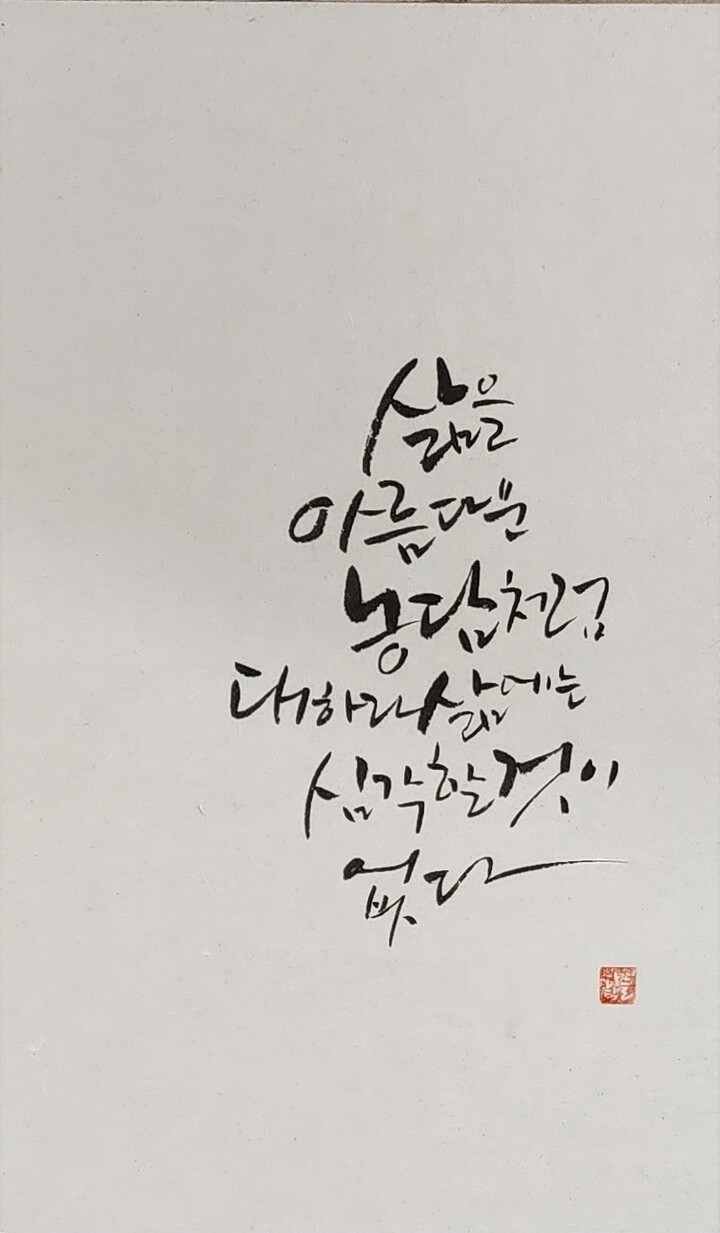 삶을
아름다운
농담처럼
대하라 삶에는
심각할 것이
없다